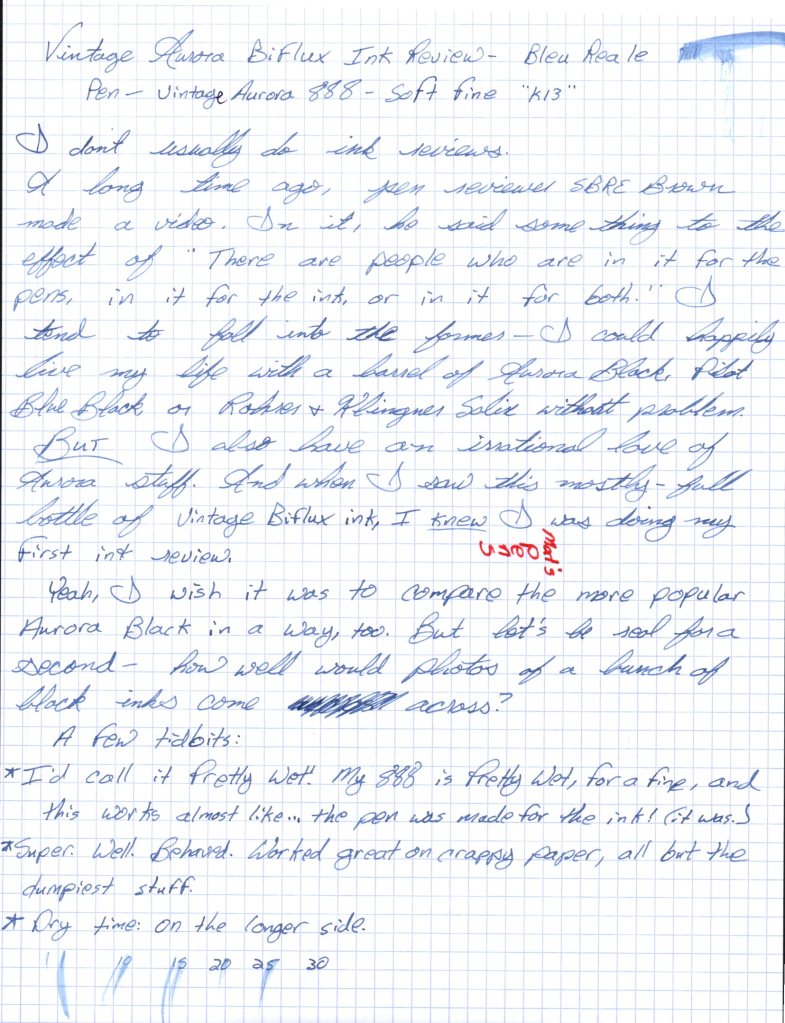 Vintage Aurora BiFlux Ink Review - Bleu Reale
Pen - Vintage Aurora 888 - Soft fine "K13"
I don't usually do ink reviews.
A long time ago, pen reviewer SBRE Brown
made a video. In it, he said something to the
effect of "There are people who are in it for the
pens, in it for the ink, or in it for both." I
tend to fall into the former - I could happily
live my life with a barrel of Aurora Black, Pilot
Blue Black or Rohrer & Klingner Salix without problem.
BUT I also have an irrational love of
Aurora stuff. And when I saw this mostly-full
bottle of Vintage Biflux ink, I knew I was doing my
first ink review.
Mat's
Pens
Yeah, I wish it was to compare the more popular
Aurora Black in a way, too. But let's be real for a
second - how well would photos of a bunch of
black inks come across?
A few tidbits:
* I'd call it Pretty Wet. My 888 is Pretty Wet, for a fine, and
this works almost like... the pen was made for the ink! (it was.)
* Super. Well. Behaved. Worked great on crappy paper, all but the
dumpiest stuff.
* Dry time: on the longer side.
10 15 20 25 30